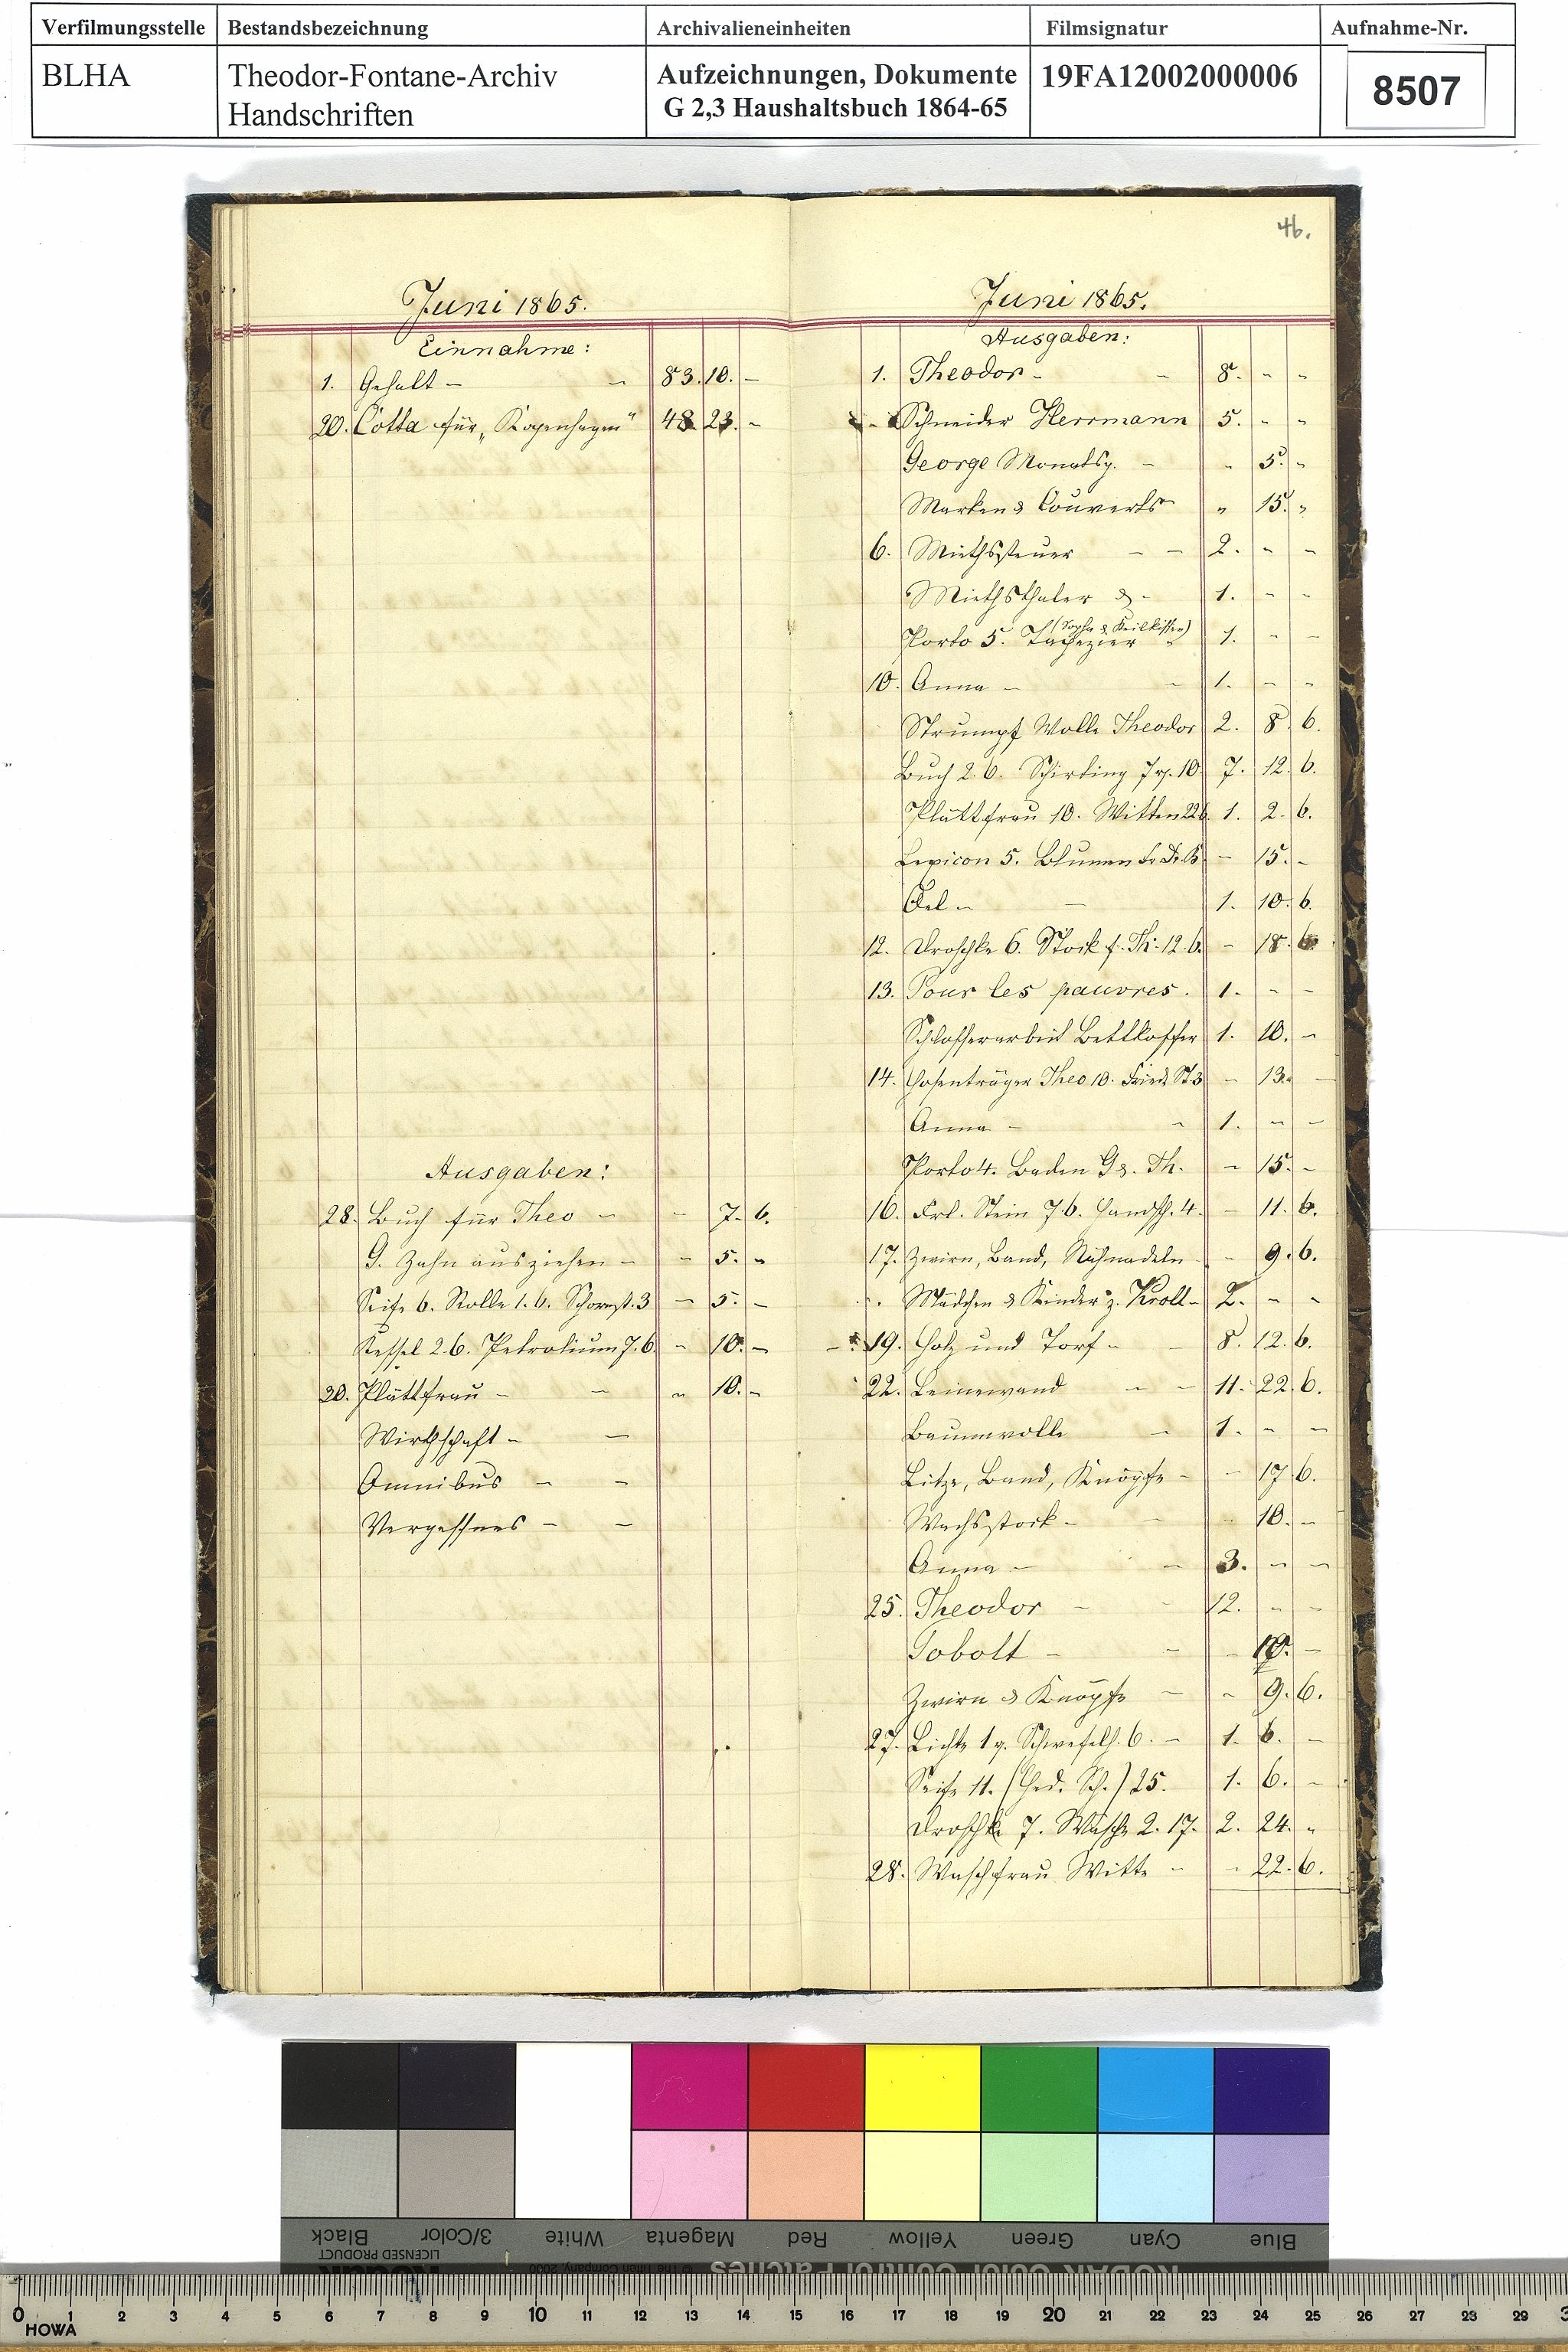 Verfilmungsstelle Bestandsbezeichnung Archivalieneinheiten Filmsignatur Aufnahme-Nr.
BLHA Theodor-Fontane-Archiv Handschriften Aufzeichnungen, Dokumente G 2,3 Haushaltsbuch 1864-65 19FA12002000006 8507
Juni 1865.
Einnahme:
1. Gehalt - - 83. 10. -
20. Cotta für „Kopenhagen" 48. 23. -
Ausgaben:
28. Buch für Theo - - 7. 6.
G. Zahn ausziehen - - 5. -
Seife 6. Rolle 1.6. Schornst. 3 - 5. -
Kessel 2.6. Petrolium 7.6. - 10. -
30. Plättfrau - - - 10. -
Wirthschaft - -
Omnibus - -
Vergessnes - -
46.
Juni 1865.
Ausgaben:
1. Theodor - - 8. - -
Schneider Herrmann 5. - -
George Monatsg. - - 5. -
Marken & Couverts - 15. -
6. Miethssteuer - - 2. - -
Miethsthaler & - 1. - -
(Sopha & Keilkissen)
Porto 5. Tapezier - 1. - -
10. Anna - - 1. - -
Strumpf Wolle Theodor 2. 8. 6.
Buch 2.6. Schirting 7 10 7. 12. 6.
Plättfrau 10. Witten 22.6. 1. 2. 6.
Lexicon 5. Blumen - 15. -
Oel - - 1. 10. 6.
12. Droschke 6. Stock f. Th. 12.6. - 18. 6.
13. Pour les pauvres. 1. - -
Schlosserarbeit Bettkoffer 1. 10. -
14. Hosenträger Theo 10. 3 - 13. -
Anna - - 1. - -
Porto 4. Baden G &. Th. - 15. -
16. Frl. Stein 7.6. Handsch. 4. - 11. 6.
17. Zwirn, Band, Nähnadeln - 9. 6.
Mädchen & Kinder z. Kroll - 2. - -
19. Holz und Torf - - 8. 12. 6.
22. Leinewand - - 11. 22. 6.
Baumwolle - 1. - -
Litze, Band, Knöpfe - - 17. 6.
Wachsstock - - - 10. -
Anna - - 3. - -
25. Theodor - - 12. - -
Tobolt - - - 10. -
Zwirn & Knöpfe - - 9. 6.
27. Lichte 1 Schwefelh. 6. - 1. 6. -
Seife 11. (Hed. Sch.) 25. 1. 6. -
Droschke 7. Wäsche 2. 17. 2. 24. -
28. Waschfrau Witte - - 22. 6.
Black 3/Color White Magenta Red Yellow Green Cyan Blue
LICENSED PRODUCT
Kodak © The Tiffen Company, 2000 KODAK Color Control Patches
0 1 2 3 4 5 6 7 8 9 10 11 12 13 14 15 16 17 18 19 20 21 22 23 24 25 26 27 28 29 3
HOWA